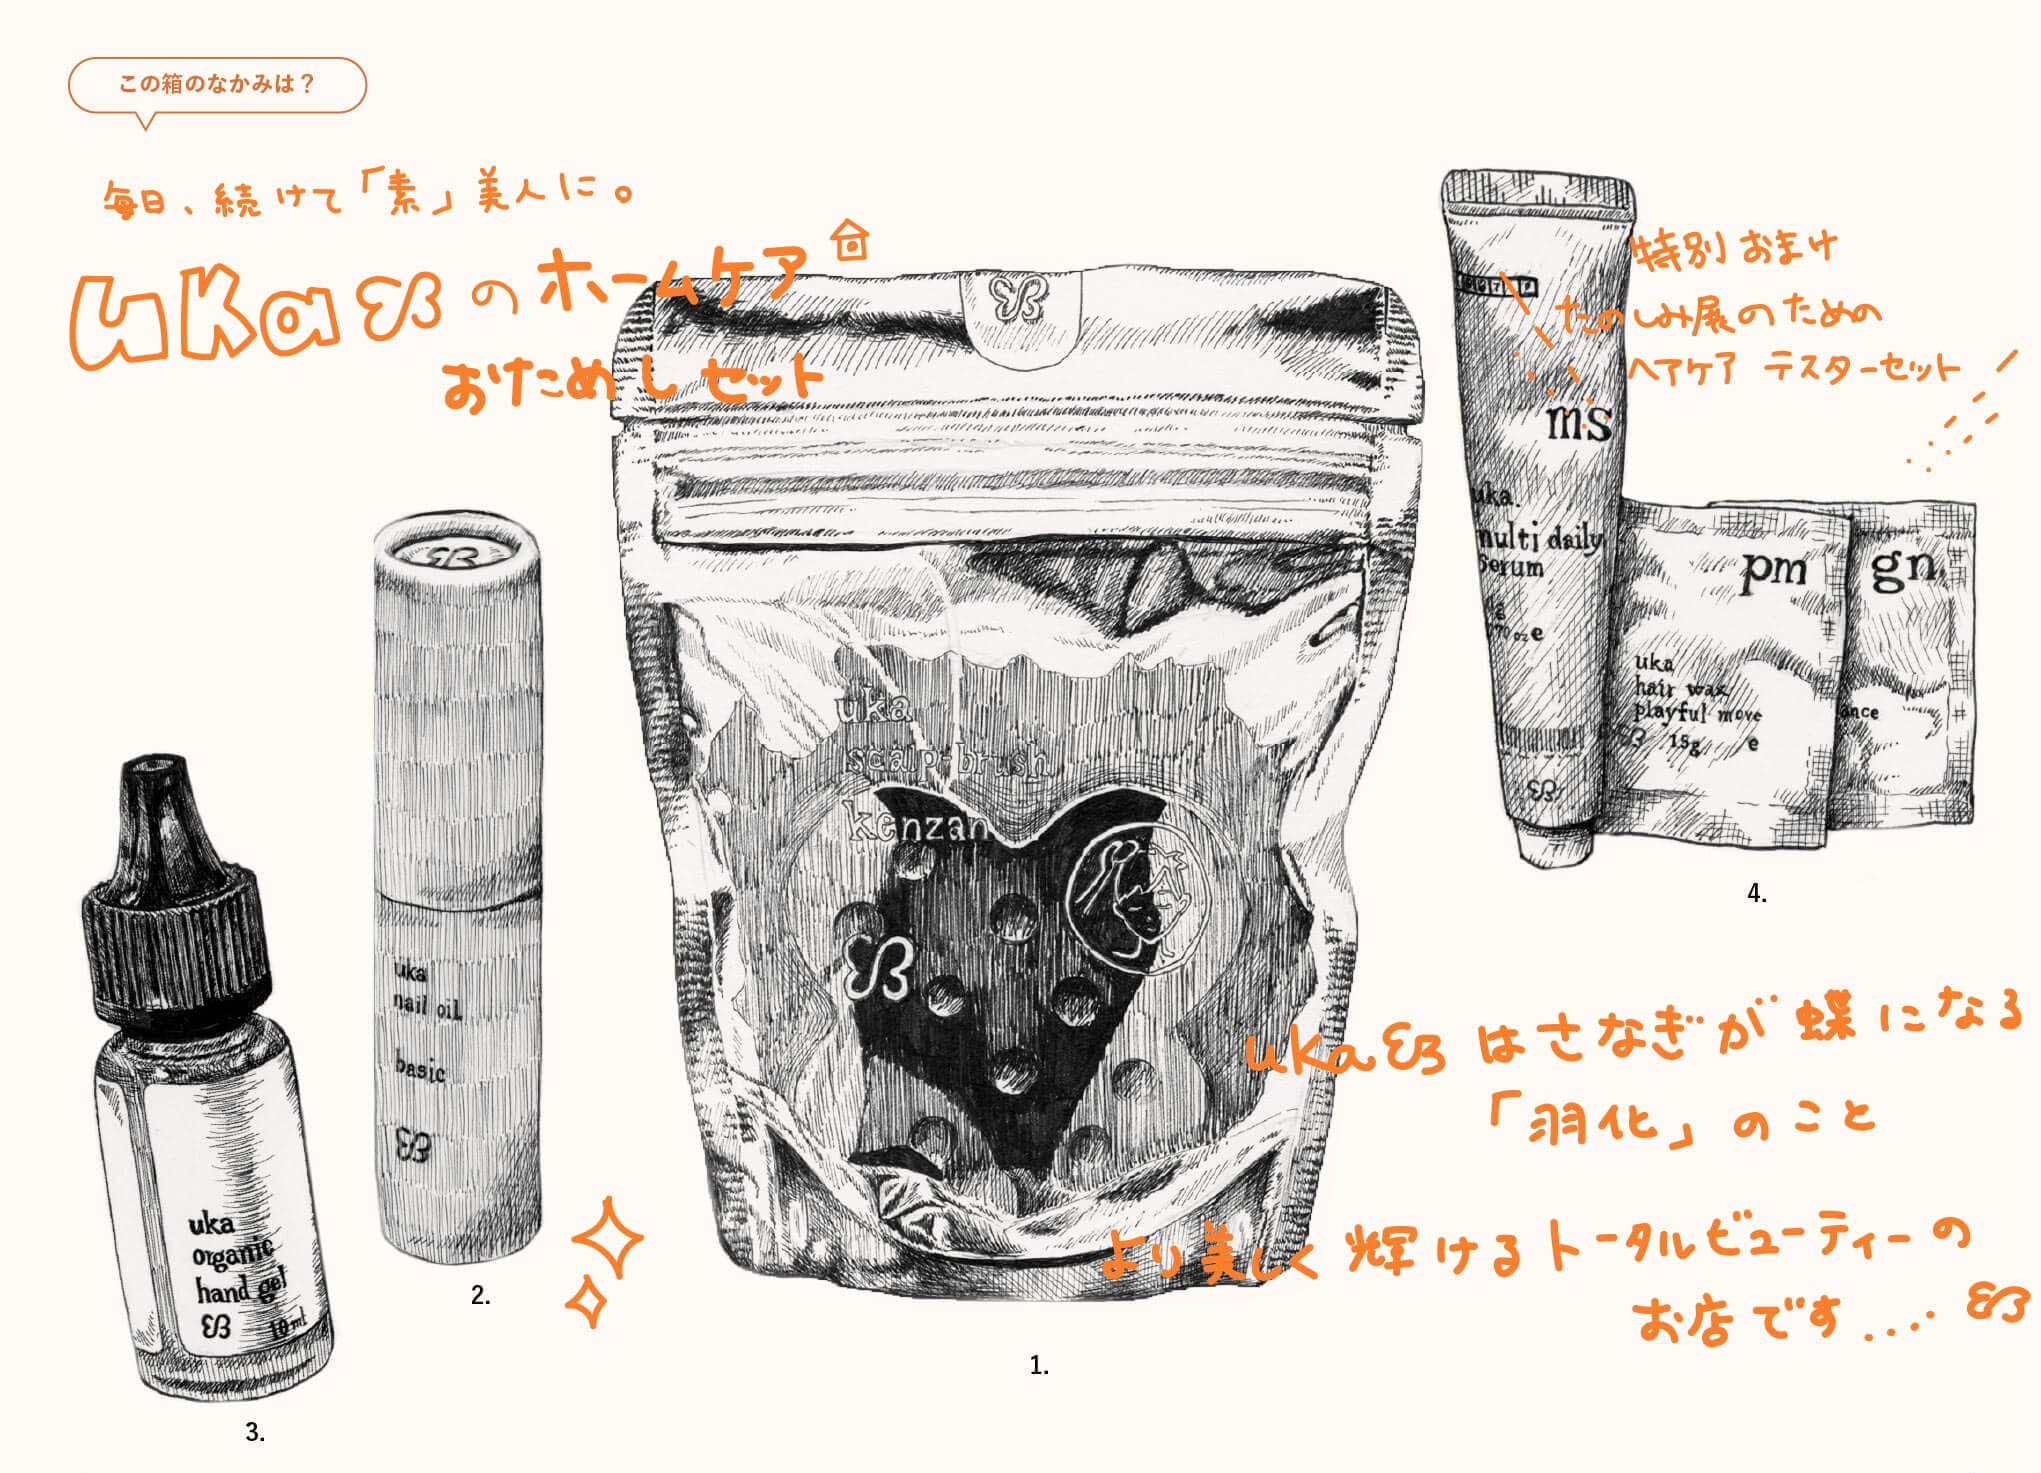 この箱のなかみは？
毎日、続けて「素」美人に。
ukaのホームケア
おためしセット
特別おまけ
たのしみ展のための
ヘアケア テスターセット
ms
uka.
multi daily
serum
e
pm
uka
hair wax
playful move
15g e
gn
ance
4.
uka
scalp brush
kenzan
1.
uka
nail oil
basic
2.
uka
organic
hand gel
10ml
3.
ukaはさなぎが蝶になる
「羽化」のこと
より美しく輝けるトータルビューティーの
お店です....